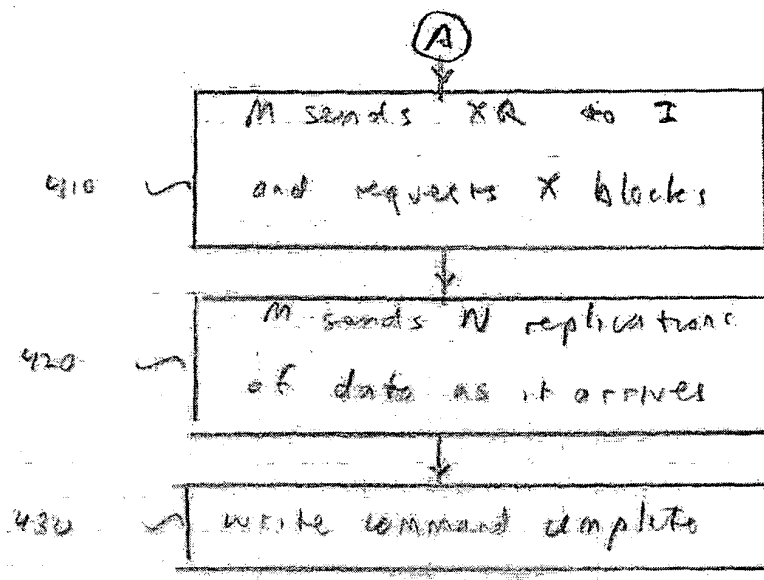 A
M sends XR to I
410 and requests X blocks
M sends N replications
420 of data as it arrives
430 write command complete